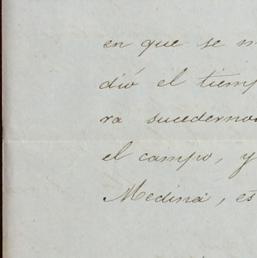 en que se
dió el tiemp
ra sucederno
el campo, y
Medina, es